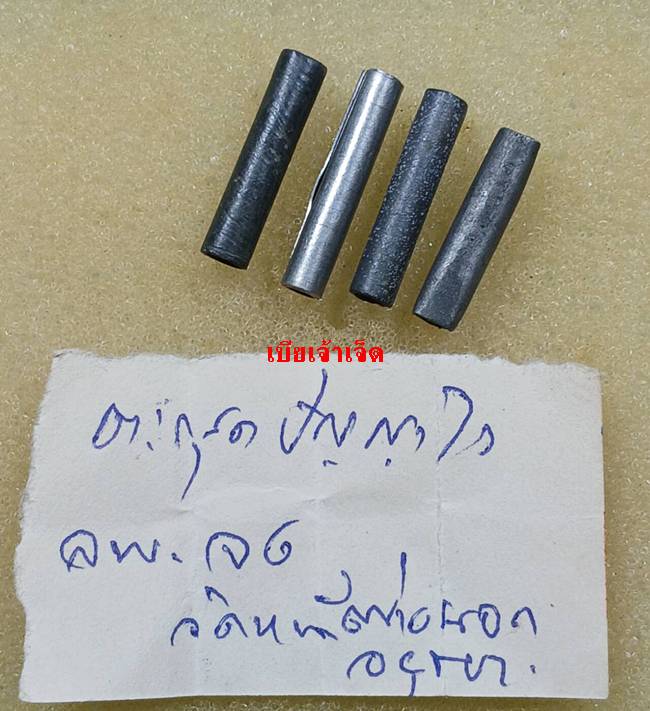 เบี้ยเจ้าเจ็ด
ตะกรุด ปัญญาไว
ลพ. จง
วัดหน้าต่างนอก
อยุธยา.